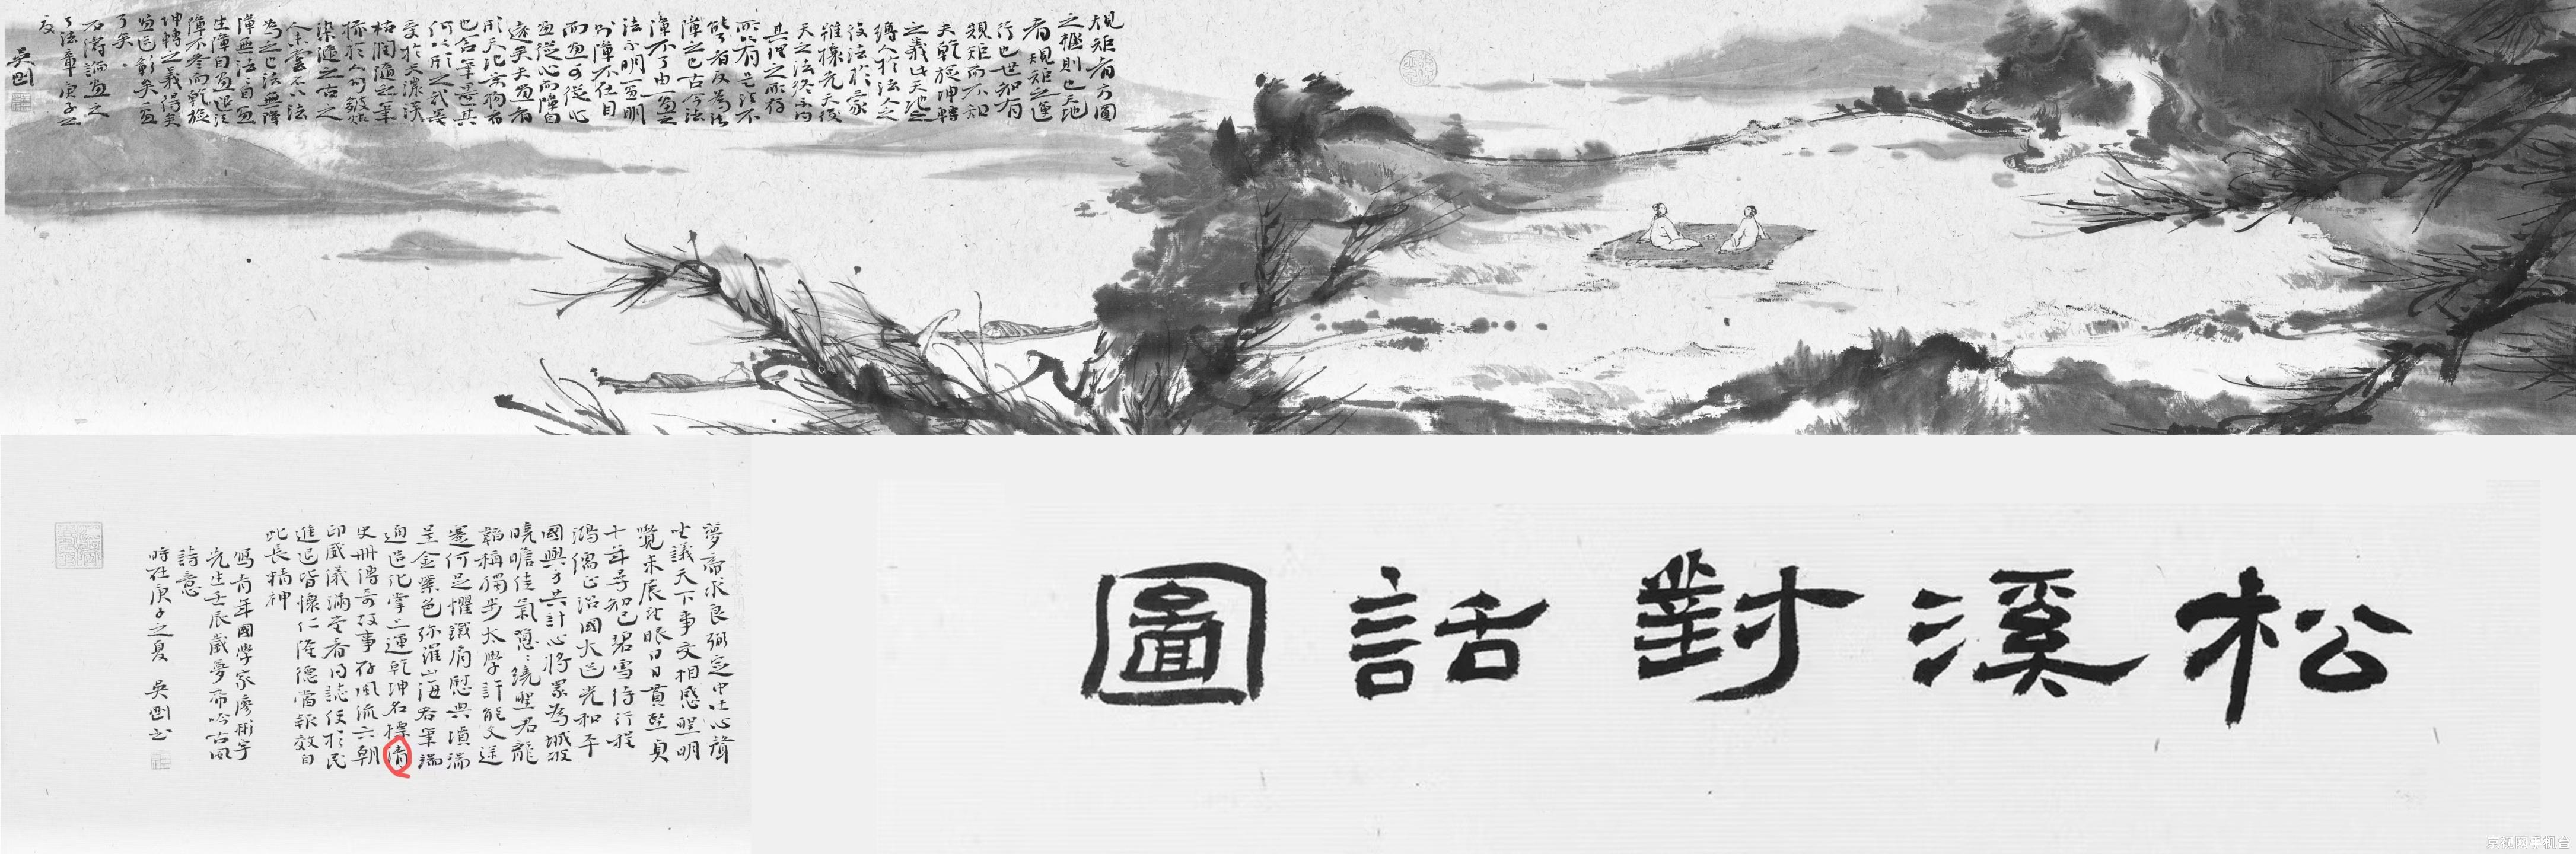 規矩者方圓
之極則也天地
者規矩之運
行也世知有
規矩而不知
夫乾旋坤轉
之義此天地之
縛人於法人之
役法於蒙
雖攘先天後
天之法終不得
其理之所存
所以有是法不
能了者反為法
障之也古今法
障不了由一畫之
法不明一畫明
則障不在目
而畫可從心
畫從心而障自
遠矣夫畫者
形天地萬物者
也舍筆墨其
何以形之哉墨
受於天濃淡
枯潤隨之筆
操於人勾皴烘
染隨之古之
人未嘗不以法
為之也法無障
障無法法自畫
生障自畫退法
障不參而乾旋
坤轉之義得矣
畫道彰矣一畫
了矣
石濤論畫之
了法章庚子之
夏
吳剛
松溪對話圖
夢帝求良弼定中吐心聲
坐議天下事文相感照明
覺來辰眼日日貫堅貞
十年尋知己碧雪待行程
鴻儒必治國大道光和平
國興才共計心將眾為城
曉瞻佳氣隱隱繞君龍
韜稱獨步太學許能文途
蹇何足懼鐵肩慰輿
呈金葉色弥山海君筆端
通造化掌上運乾坤名標清
史冊傳奇故事存風流六朝
印威儀滿堂香同誌任於民
進退皆懷仁厚德當報效自
此長精神
寫青年國學家廖彬宇
先生壬辰歲夢帝吟古風
詩意
時在庚子之夏 吳剛